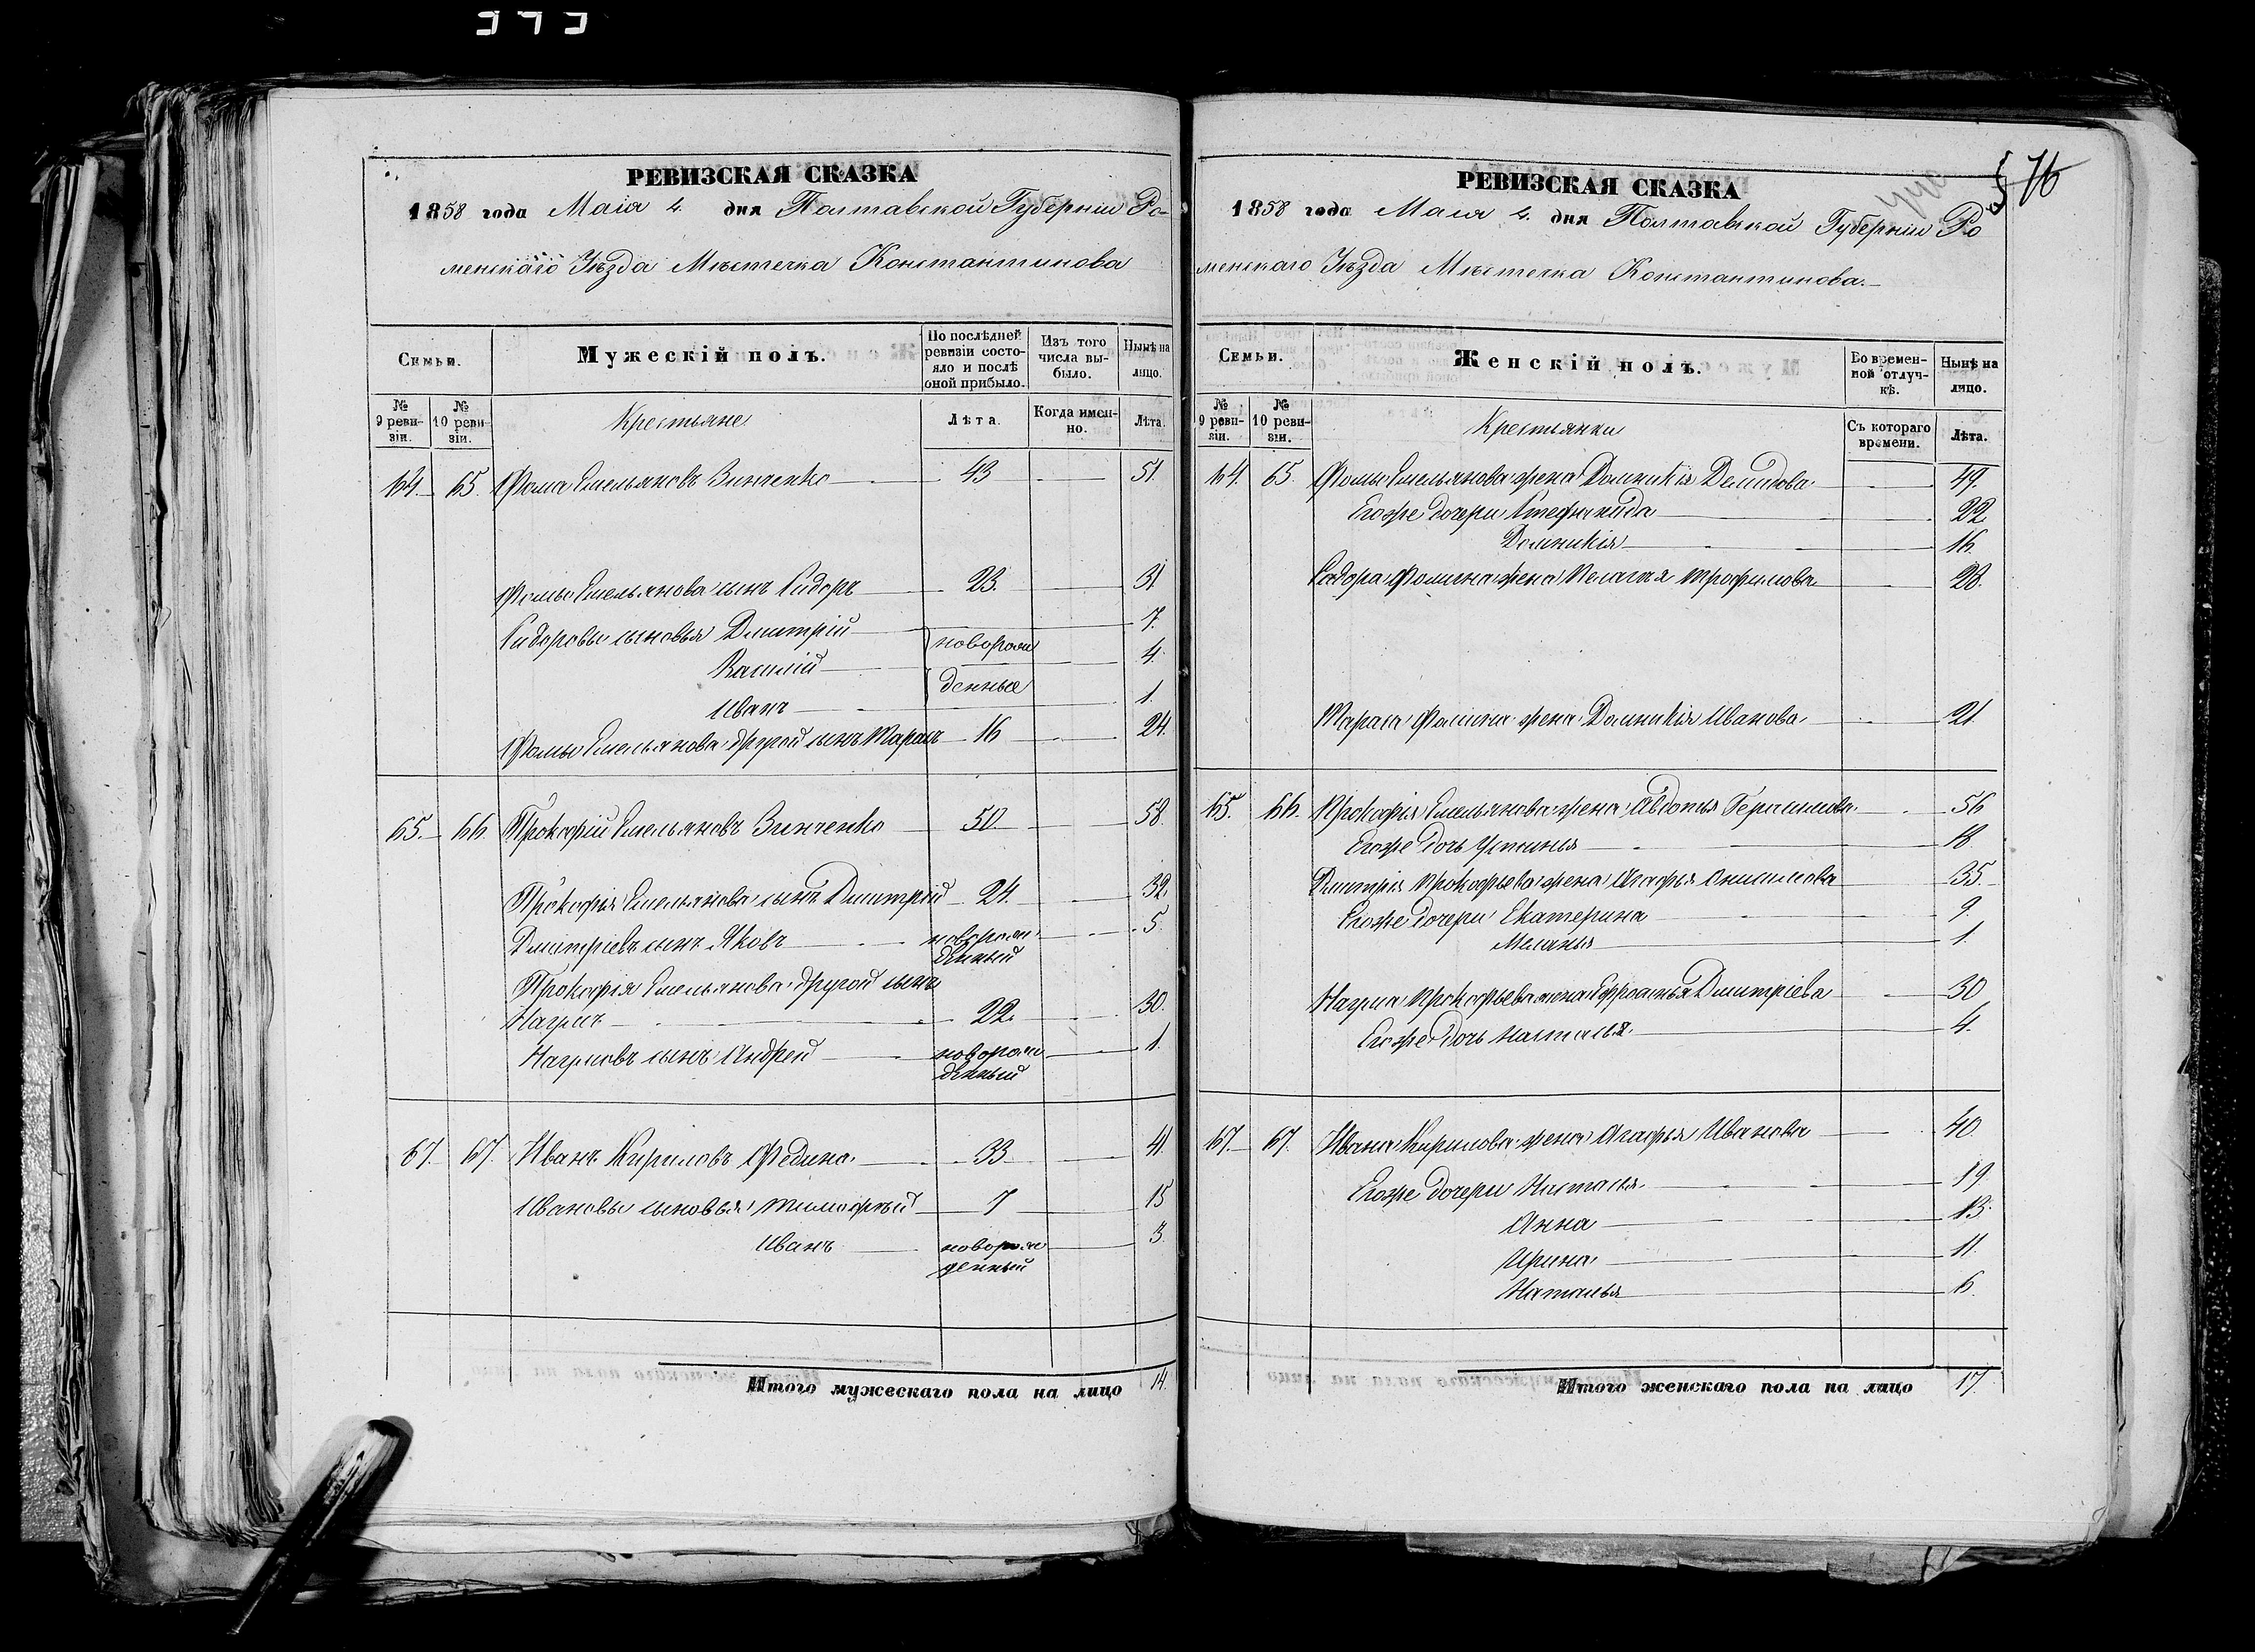 РЕВИЗСКАЯ СКАЗКА
1858 года Маія 4. дня Полтавской Губерніи Ро-
менскаго Уѣзда Мѣстечка Константинова
Семьи. Мужескій полъ. По послѣдней ревизіи состояло и послѣ оной прибыло. Изъ того числа выбыло. Нынѣ на лицо.
№ 9 ревизіи. № 10 ревизіи. Крестьяне Лѣта. Когда именно. Лѣта.
64. 65. Фома Емельяновъ Зинченко 43 51.
Фомы Емельянова сынъ Сидоръ 23. 31
Сидоровы сыновья Дмитрій 7.
новорож
Василій 4.
денные
Иванъ 1.
Фомы Емельянова другой сынъ Тарасъ 16 24.
65. 66. Прокофій Емельяновъ Зинченко 50 58.
Прокофія Емельянова сынъ Дмитрій 24. 32.
Дмитріевъ сынъ Яковъ новорож 5.
денный
Прокофія Емельянова другой сынъ
Наумъ 22. 30.
Наумовъ сынъ Андрей новорож 1.
денный
67. 67. Иванъ Кириловъ Федина 33 41.
Ивановы сыновья Тимофѣй 7 15
Иванъ новорож 3.
денный
Итого мужескаго пола на лицо 14.
76
РЕВИЗСКАЯ СКАЗКА
1858 года Маія 4. дня Полтавской Губерніи Ро
менскаго Уѣзда Мѣстечка Константинова.
Семьи. Женскій полъ. Во временной отлучкѣ. Нынѣ на лицо.
№ 9 ревизіи. № 10 ревизіи. Крестьянки Съ котораго времени. Лѣта.
64. 65. Фомы Емельянова жена Домникія Демидова 49.
Его же дочери Степанида 22.
Домникія 16.
Сидора Фомина жена Пелагея Трофимова 28.
Тараса Фомина жена Домникія Иванова 21.
65. 66. Прокофія Емельянова жена Авдотья Герасимова 56
Его же дочь Устинья 18
Дмитрія Прокофьева жена Агафья Онисимова 35.
Его же дочери Екатерина 9.
Меланья 1.
Наума Прокофьева жена Ефросинья Дмитріева 30
Его же дочь Настасья 4.
67. 67. Ивана Кирилова жена Агафья Иванова 40.
Его же дочери Настасья 19.
Анна 13.
Ирина 11.
Наталья 6.
Итого женскаго пола на лицо 17.